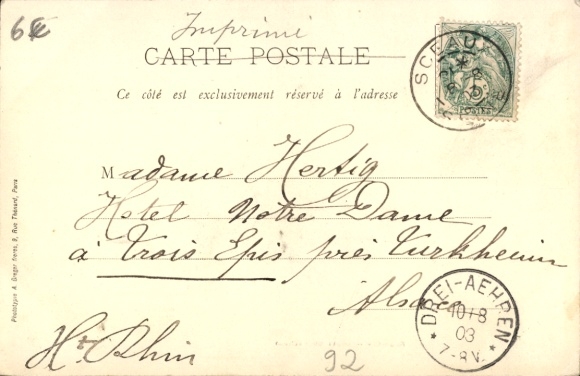 6€
Imprimé
CARTE POSTALE
Ce côté est exclusivement réservé à l'adresse
SCEAUX
POSTES
Madame Hertig
Hotel Notre Dame
à Trois Epis près Turkheim
Alsace
Ht Rhin
DREI-AEHREN
10/8
03
7-8V.
92
Phototypie A. Breger frères, 9, Rue Thénard, Paris